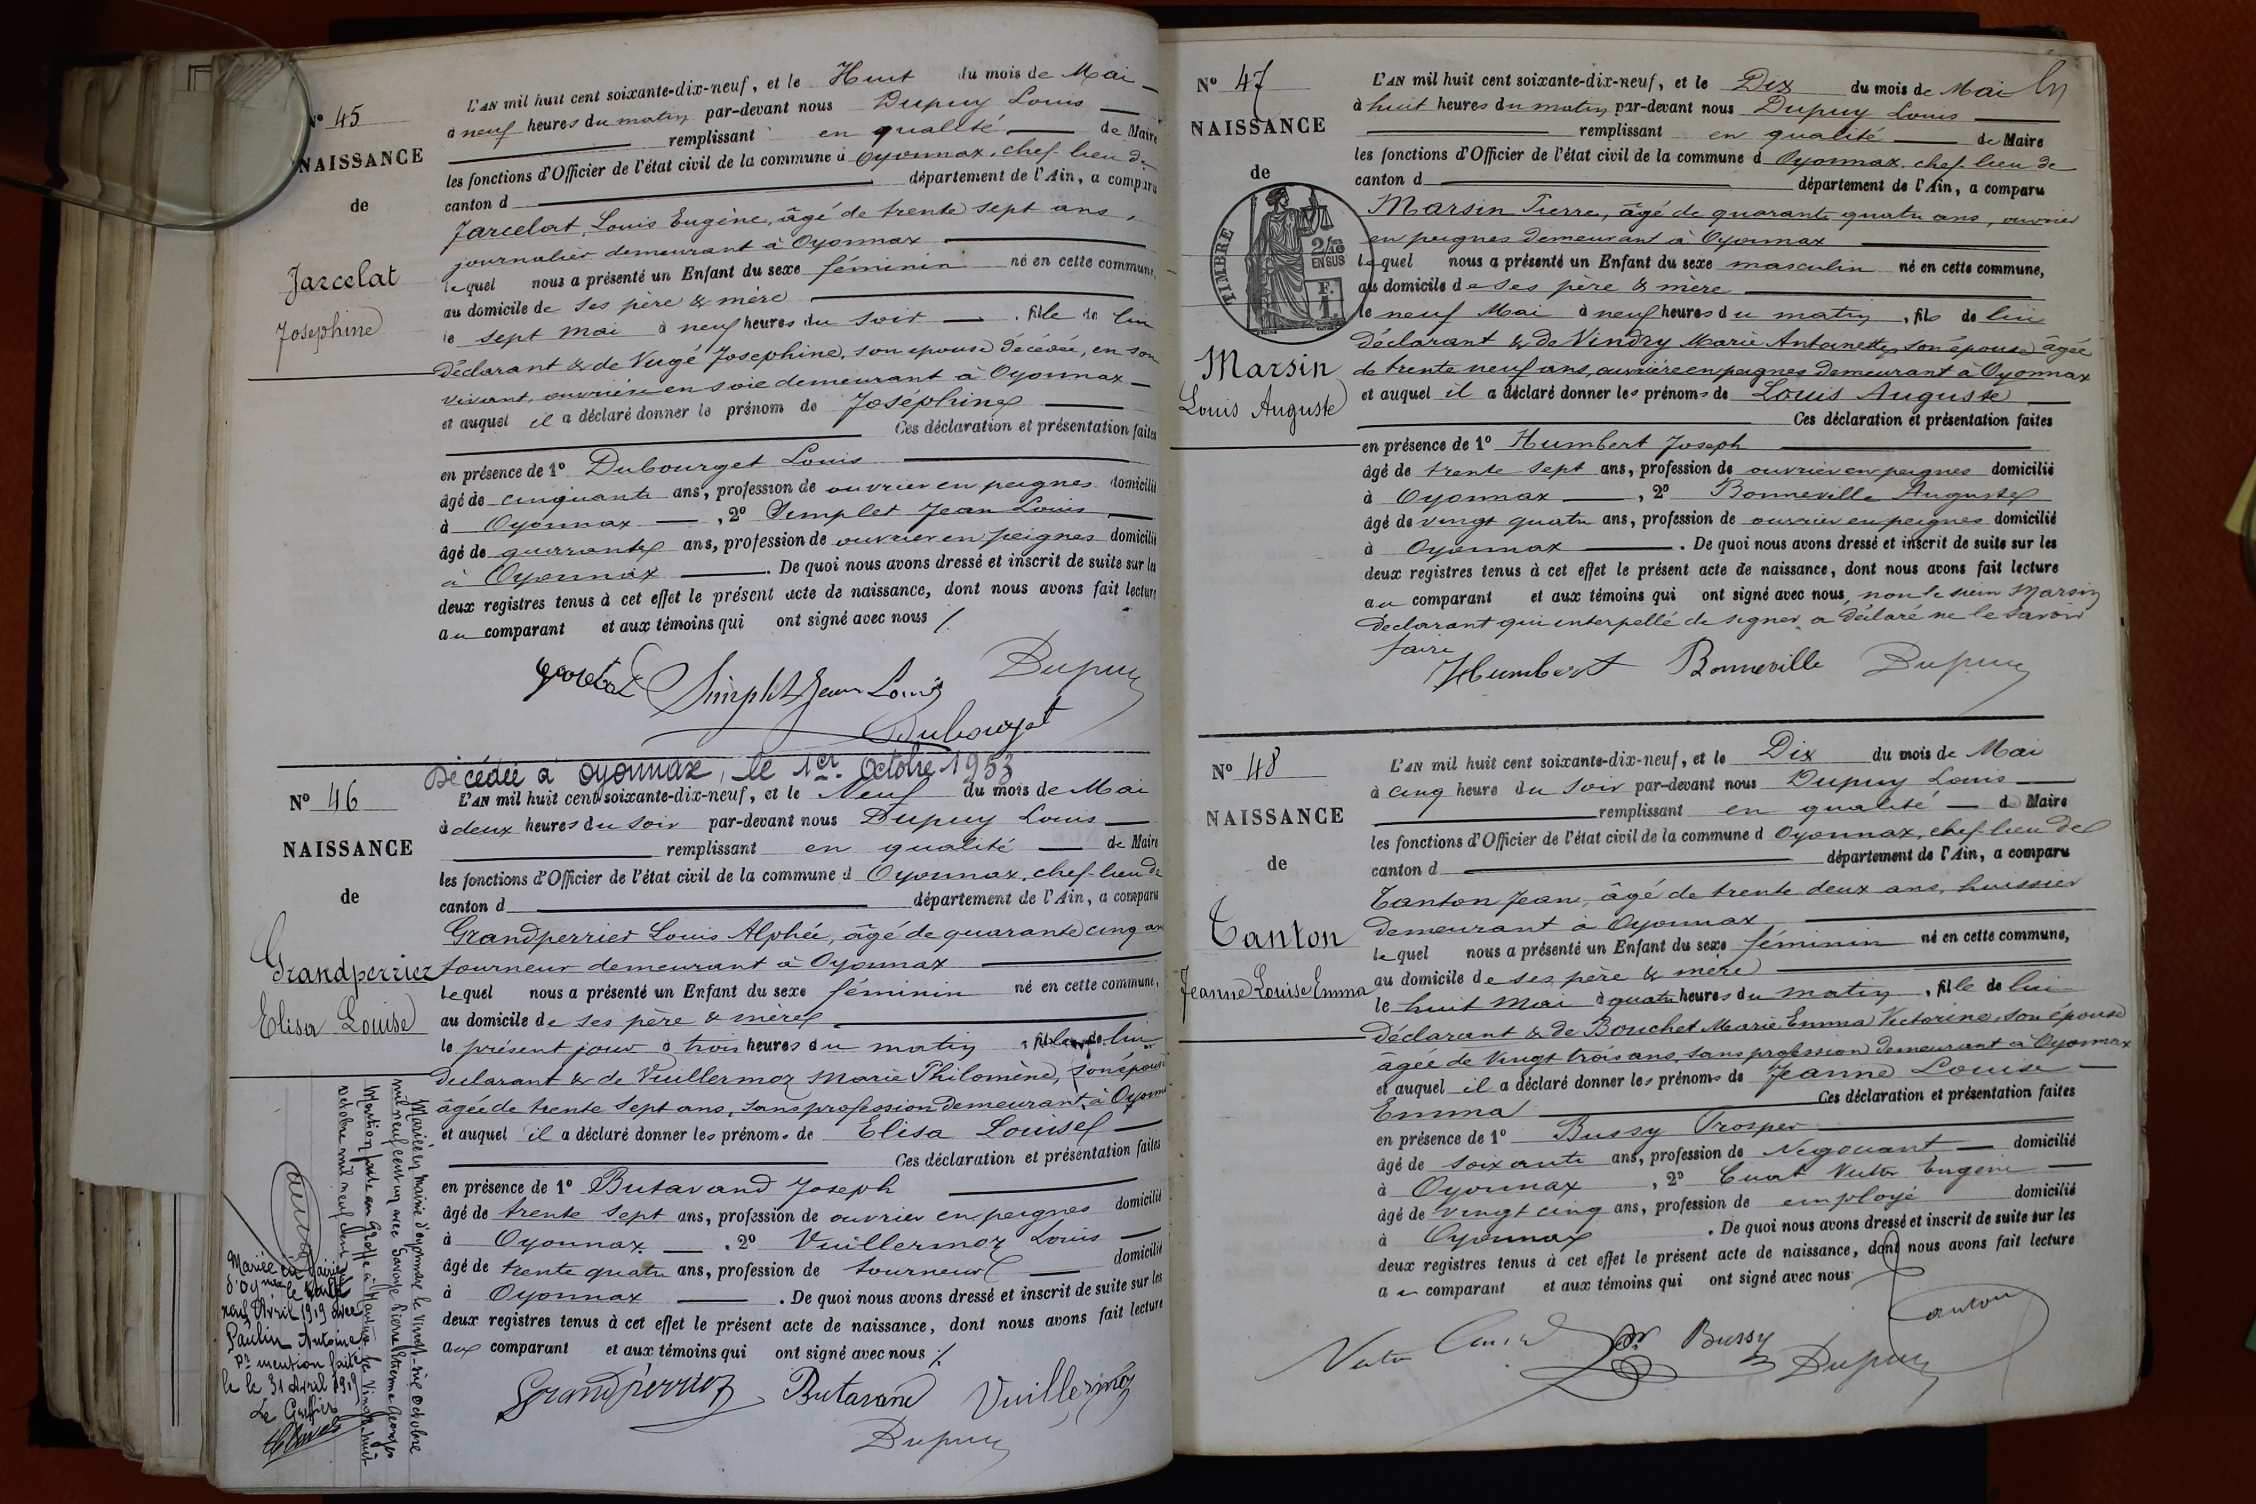 N° 45
NAISSANCE
de
Jarcelat
Josephine
L'AN mil huit cent soixante-dix-neuf, et le Huit du mois de Mai
à neuf heures du matin par-devant nous Dupuy Louis
remplissant en qualité de Maire
les fonctions d'Officier de l'état civil de la commune d Oyonnax, chef-lieu de
canton d département de l'Ain, a comparu
Jarcelat, Louis Eugène, âgé de trente sept ans,
journalier demeurant à Oyonnax
lequel nous a présenté un Enfant du sexe féminin né en cette commune,
au domicile de ses père & mère
le sept mai à neuf heures du soir, fille de lui
déclarant & de Vugé Josephine, son épouse décédée, en son
vivant, ouvrière en soie demeurant à Oyonnax
et auquel il a déclaré donner le prénom de Josephine
Ces déclaration et présentation faites
en présence de 1° Dubourget Louis
âgé de cinquante ans, profession de ouvrier en peignes domicilié
à Oyonnax, 2° Simplet Jean Louis
âgé de quarante ans, profession de ouvrier en peignes domicilié
à Oyonnax. De quoi nous avons dressé et inscrit de suite sur les
deux registres tenus à cet effet le présent acte de naissance, dont nous avons fait lecture
au comparant et aux témoins qui ont signé avec nous ./.
Simplet Jean Louis Dupuy
Dubourget
Décédée à Oyonnax, le 1er Octobre 1953
N° 46
NAISSANCE
de
Grandperrier
Elisa Louise
L'AN mil huit cent soixante-dix-neuf, et le Neuf du mois de Mai
à deux heures du soir par-devant nous Dupuy Louis
remplissant en qualité de Maire
les fonctions d'Officier de l'état civil de la commune d Oyonnax, chef-lieu de
canton d département de l'Ain, a comparu
Grandperrier Louis Alphée, âgé de quarante cinq ans
tourneur demeurant à Oyonnax
lequel nous a présenté un Enfant du sexe féminin né en cette commune,
au domicile de ses père & mère
le présent jour à trois heures du matin, fille de lui
déclarant & de Vuillermoz Marie Philomène, son épouse
âgée de trente sept ans, sans profession demeurant à Oyonnax
et auquel il a déclaré donner les prénoms de Elisa Louise
Ces déclaration et présentation faites
en présence de 1° Butavand Joseph
âgé de trente sept ans, profession de ouvrier en peignes domicilié
à Oyonnax, 2° Vuillermoz Louis
âgé de trente quatre ans, profession de tourneur domicilié
à Oyonnax. De quoi nous avons dressé et inscrit de suite sur les
deux registres tenus à cet effet le présent acte de naissance, dont nous avons fait lecture
aux comparant et aux témoins qui ont signé avec nous ./.
Grandperrier Butavand Vuillermoz
Dupuy
Mariée en Mairie d'Oyonnax le Vingt-six Octobre
mil neuf cent un avec Savoye Pierre Etienne Georges
Mention faite au Greffe à Nantua le Vingt-huit
Octobre mil neuf cent un
Mariée en Mairie
d'Oyonnax le
neuf Avril 1919 avec
Paulin Antoine
Pr mention faite
le 31 Avril 1919
Le Greffier
N° 47
NAISSANCE
de
TIMBRE
2/10 EN SUS
F.
1.
Marsin
Louis Auguste
L'AN mil huit cent soixante-dix-neuf, et le Dix du mois de Mai
à huit heures du matin par-devant nous Dupuy Louis
remplissant en qualité de Maire
les fonctions d'Officier de l'état civil de la commune d Oyonnax, chef-lieu de
canton d département de l'Ain, a comparu
Marsin Pierre, âgé de quarante quatre ans, ouvrier
en peignes demeurant à Oyonnax
lequel nous a présenté un Enfant du sexe masculin né en cette commune,
au domicile de ses père & mère
le neuf Mai à neuf heures du matin, fils de lui
déclarant & de Vindry Marie Antoinette, son épouse âgée
de trente neuf ans, ouvrière en peignes demeurant à Oyonnax
et auquel il a déclaré donner les prénoms de Louis Auguste
Ces déclaration et présentation faites
en présence de 1° Humbert Joseph
âgé de trente sept ans, profession de ouvrier en peignes domicilié
à Oyonnax, 2° Bonneville Auguste
âgé de vingt quatre ans, profession de ouvrier en peignes domicilié
à Oyonnax. De quoi nous avons dressé et inscrit de suite sur les
deux registres tenus à cet effet le présent acte de naissance, dont nous avons fait lecture
au comparant et aux témoins qui ont signé avec nous, non le sieur Marsin
déclarant qui interpellé de signer a déclaré ne le savoir
faire
JHumbert Bonneville Dupuy
N° 48
NAISSANCE
de
Tanton
Jeanne Louise Emma
L'AN mil huit cent soixante-dix-neuf, et le Dix du mois de Mai
à cinq heure du soir par-devant nous Dupuy Louis
remplissant en qualité de Maire
les fonctions d'Officier de l'état civil de la commune d Oyonnax, chef-lieu de
canton d département de l'Ain, a comparu
Tanton Jean, âgé de trente deux ans, huissier
demeurant à Oyonnax
lequel nous a présenté un Enfant du sexe féminin né en cette commune,
au domicile de ses père & mère
le huit Mai à quatre heures du matin, fille de lui
déclarant & de Bouchet Marie Emma Victorine, son épouse
âgée de vingt trois ans, sans profession demeurant à Oyonnax
et auquel il a déclaré donner les prénoms de Jeanne Louise
Emma Ces déclaration et présentation faites
en présence de 1° Bussy Prosper
âgé de soixante ans, profession de Négociant domicilié
à Oyonnax, 2° Cuat Victor Eugène
âgé de vingt cinq ans, profession de employé domicilié
à Oyonnax. De quoi nous avons dressé et inscrit de suite sur les
deux registres tenus à cet effet le présent acte de naissance, dont nous avons fait lecture
au comparant et aux témoins qui ont signé avec nous
Tanton
Victor Bussy Dupuy